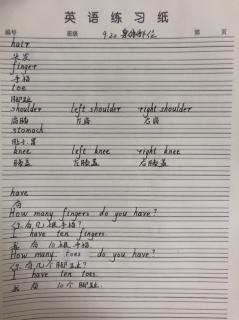 英 语 练 习 纸
编号 班级 9.20 身体部位 第 页
hair
头发
finger
手指
toe
脚趾
shoulder left shoulder right shoulder
肩膀 左肩 右肩
stomach
肚子;胃
knee left knee right knee
膝盖 左膝盖 右膝盖
have
有
How many fingers do you have?
你有几根手指?
I have ten fingers.
我有10根手指.
How many toes do you have?
你有几个脚趾头?
I have ten toes.
我有10个脚趾.